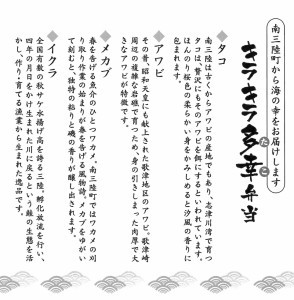 南三陸町から海の幸をお届けします
キラキラ多幸弁当
たこ
◆タコ
南三陸は古くからアワビの産地でもあり、志津川湾で育つ
タコは、贅沢にもそのアワビを餌にするといわれています。
ほんのり桜色の柔らかい身をかみしめると汐風の香りに
包まれます。
◆アワビ
その昔、昭和天皇にも献上された歌津地区のアワビ。歌津崎
周辺の複雑な岩礁で育つため、身の引きしまった肉厚で大
きなアワビが特徴です。
◆メカブ
春を告げる魚介のひとつワカメ。南三陸町ではワカメの刈
り取り作業の始まりが春を告げる風物詩。メカブをゆがい
て刻むと、独特の粘りと磯の香りが醸し出れます。
◆イクラ
全国有数の秋サケ水揚げ高を誇る三陸。孵化放流を行い、
四年の月日をかけ生まれた川に戻るという鮭の生態を活
かし、作り・育てる漁業から生まれた逸品です。